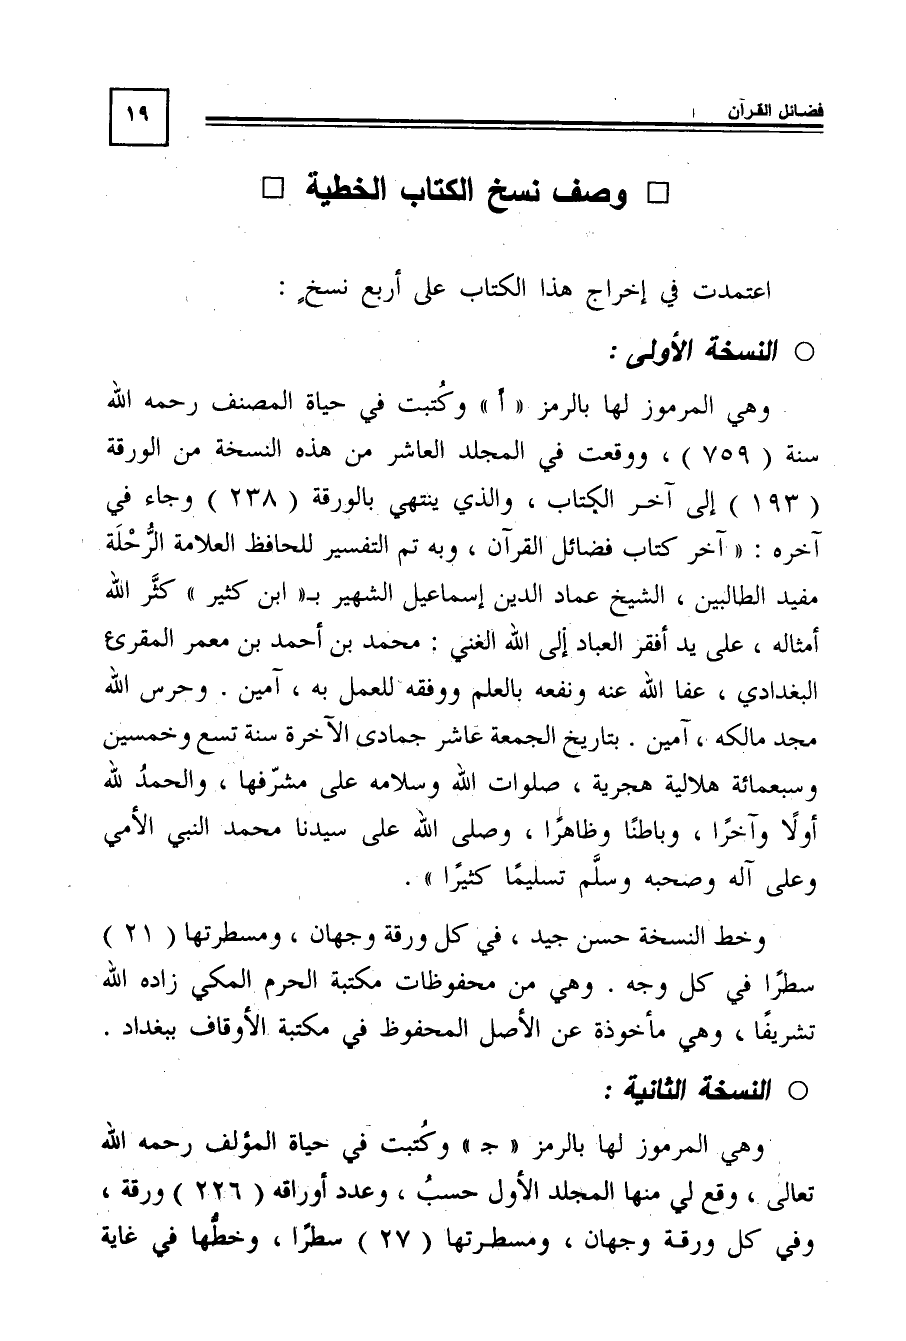 فضائل القرآن
١٩
□ وصف نسخ الكتاب الخطية □
اعتمدت في إخراج هذا الكتاب على أربع نسخٍ :
○ النسخة الأولى :
وهي المرموز لها بالرمز « أ » وكُتبت في حياة المصنف رحمه الله
سنة ( ٧٥٩ ) ، ووقعت في المجلد العاشر من هذه النسخة من الورقة
( ١٩٣ ) إلى آخر الكتاب ، والذي ينتهي بالورقة ( ٢٣٨ ) وجاء في
آخره : « آخر كتاب فضائل القرآن ، وبه تم التفسير للحافظ العلامة الرُّحْلَة
مفيد الطالبين ، الشيخ عماد الدين إسماعيل الشهير بـ« ابن كثير » كثَّر الله
أمثاله ، على يد أفقر العباد إلى الله الغني : محمد بن أحمد بن معمر المقرئ
البغدادي ، عفا الله عنه ونفعه بالعلم ووفقه للعمل به ، آمين . وحرس الله
مجد مالكه ، آمين . بتاريخ الجمعة عاشر جمادى الآخرة سنة تسع وخمسين
وسبعمائة هلالية هجرية ، صلوات الله وسلامه على مشرّفها ، والحمدُ لله
أولًا وآخرًا ، وباطنًا وظاهرًا ، وصلى الله على سيدنا محمد النبي الأمي
وعلى آله وصحبه وسلَّم تسليمًا كثيرًا » .
وخط النسخة حسن جيد ، في كل ورقة وجهان ، ومسطرتها ( ٢١ )
سطرًا في كل وجه . وهي من محفوظات مكتبة الحرم المكي زاده الله
تشريفًا ، وهي مأخوذة عن الأصل المحفوظ في مكتبة الأوقاف ببغداد .
○ النسخة الثانية :
وهي المرموز لها بالرمز « جـ » وكُتبت في حياة المؤلف رحمه الله
تعالى ، وقع لي منها المجلد الأول حسبُ ، وعدد أوراقه ( ٢٢٦ ) ورقة ،
وفي كل ورقة وجهان ، ومسطرتها ( ٢٧ ) سطرًا ، وخطُّها في غاية